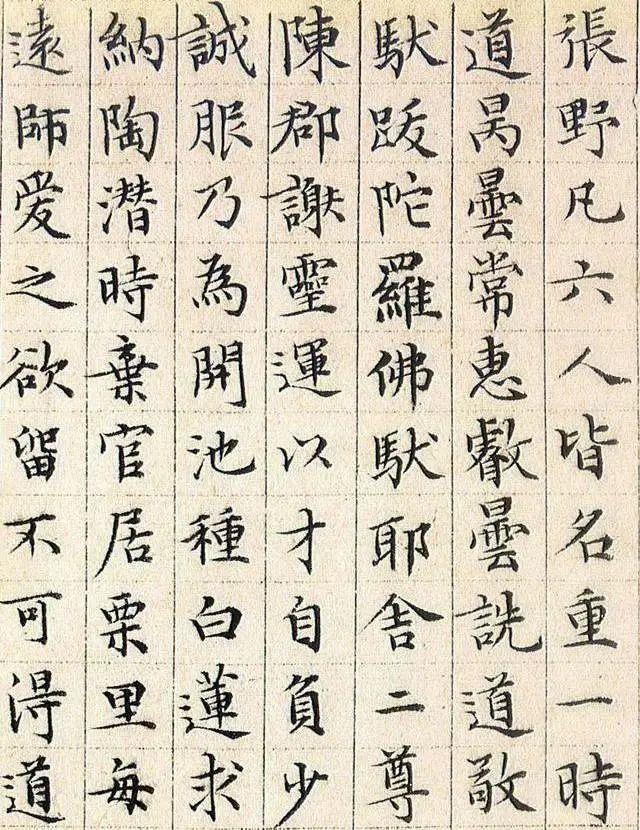 張野凡六人皆名重一時
道昺曇常惠叡曇詵道敬
馱跋陀羅佛馱耶舍二尊
陳郡謝靈運以才自負少
誠服乃為開池種白蓮求
納陶潛時棄官居栗里每
遠師爱之欲留不可得道